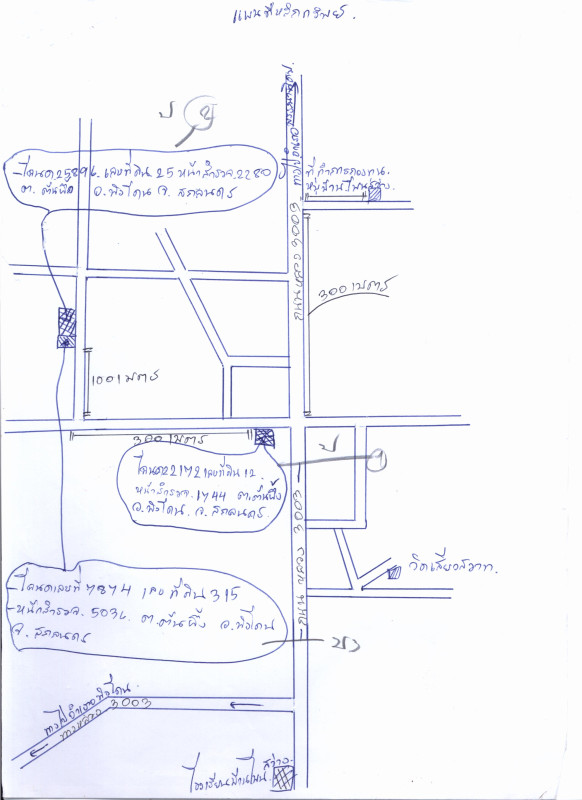 แผนที่หลักทรัพย์.
ป ๒
-โฉนด25896. เลขที่ดิน 25 หน้าสำรวจ.2280
ต. ต้นผึ้ง อ.พังโคน จ. สกลนคร
ที่ทำการกองทุน.
หมู่บ้านโพนสว่าง.
ถนนหลวง 3003
300 เมตร
100 เมตร
300 เมตร
ป ๑
โฉนด22172 เลขที่ดิน 12.
หน้าสำรวจ. 1744 ต.ต้นผึ้ง
อ.พังโคน. จ. สกลนคร.
ถนน หลวง 3003
วัดเสียงสวาท.
-โฉนดเลขที่ 7874 เลขที่ดิน 315
-หน้าสำรวจ. 5036. ต.ต้นผึ้ง อ.พังโคน
จ. สกลนคร
ทางไปอำเภอพังโคน.
ทางหลวง 3003
โรงเรียนบ้านโพน
สว่าง.